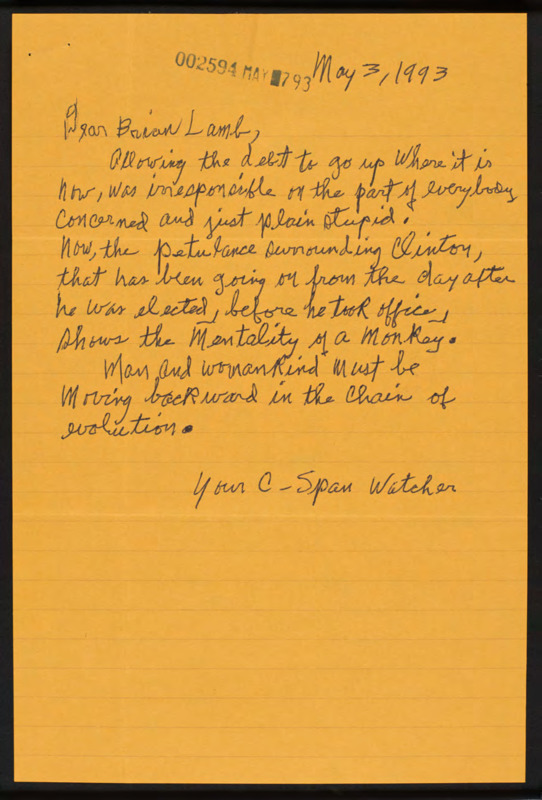 002594 MAY 793
May 3, 1993
Dear Brian Lamb,
Allowing the debt to go up Where it is
now, was irresponsible on the part of everybody
concerned and just plain stupid.
Now, the petulance surrounding Clinton,
that has been going on from the day after
he was elected, before he took office,
shows the Mentality of a Monkey.
Man, and womankind Must be
Moving backward in the Chain of
evolution.
Your C-Span Watcher